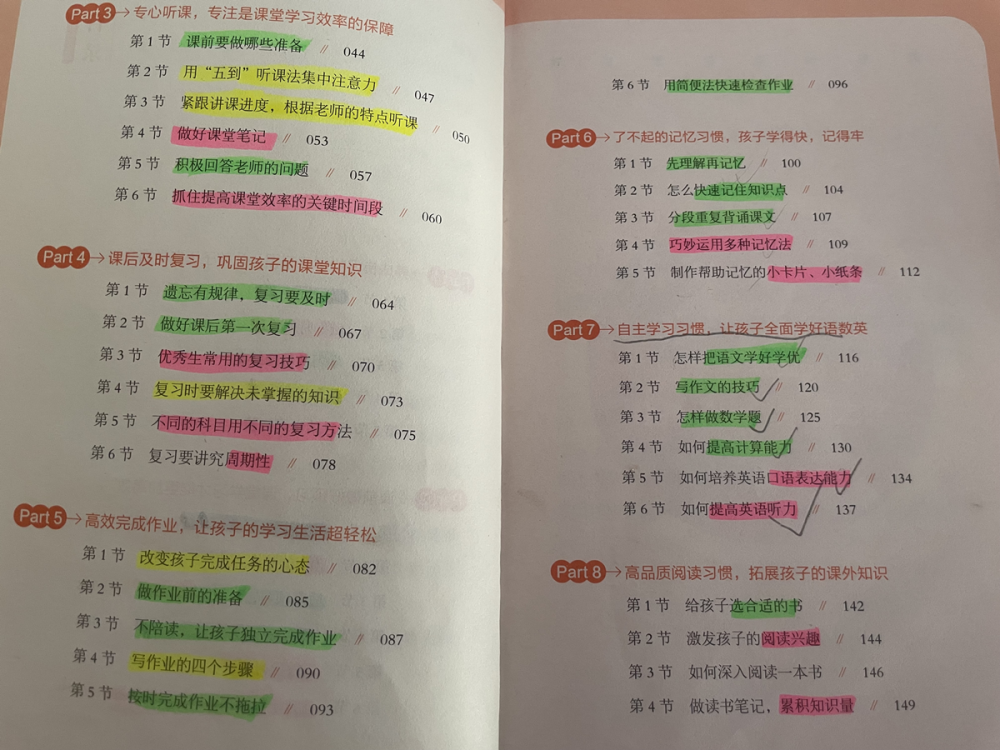 Part 3 → 专心听课，专注是课堂学习效率的保障
第 1 节 课前要做哪些准备 // 044
第 2 节 用“五到”听课法集中注意力 // 047
第 3 节 紧跟讲课进度，根据老师的特点听课 // 050
第 4 节 做好课堂笔记 // 053
第 5 节 积极回答老师的问题 // 057
第 6 节 抓住提高课堂效率的关键时间段 // 060
Part 4 → 课后及时复习，巩固孩子的课堂知识
第 1 节 遗忘有规律，复习要及时 // 064
第 2 节 做好课后第一次复习 // 067
第 3 节 优秀生常用的复习技巧 // 070
第 4 节 复习时要解决未掌握的知识 // 073
第 5 节 不同的科目用不同的复习方法 // 075
第 6 节 复习要讲究周期性 // 078
Part 5 → 高效完成作业，让孩子的学习生活超轻松
第 1 节 改变孩子完成任务的心态 // 082
第 2 节 做作业前的准备 // 085
第 3 节 不陪读，让孩子独立完成作业 // 087
第 4 节 写作业的四个步骤 // 090
第 5 节 按时完成作业不拖拉 // 093
第 6 节 用简便法快速检查作业 // 096
Part 6 → 了不起的记忆习惯，孩子学得快，记得牢
第 1 节 先理解再记忆 // 100
第 2 节 怎么快速记住知识点 // 104
第 3 节 分段重复背诵课文 // 107
第 4 节 巧妙运用多种记忆法 // 109
第 5 节 制作帮助记忆的小卡片、小纸条 // 112
Part 7 → 自主学习习惯，让孩子全面学好语数英
第 1 节 怎样把语文学好学优 // 116
第 2 节 写作文的技巧 // 120
第 3 节 怎样做数学题 // 125
第 4 节 如何提高计算能力 // 130
第 5 节 如何培养英语口语表达能力 // 134
第 6 节 如何提高英语听力 // 137
Part 8 → 高品质阅读习惯，拓展孩子的课外知识
第 1 节 给孩子选合适的书 // 142
第 2 节 激发孩子的阅读兴趣 // 144
第 3 节 如何深入阅读一本书 // 146
第 4 节 做读书笔记，累积知识量 // 149